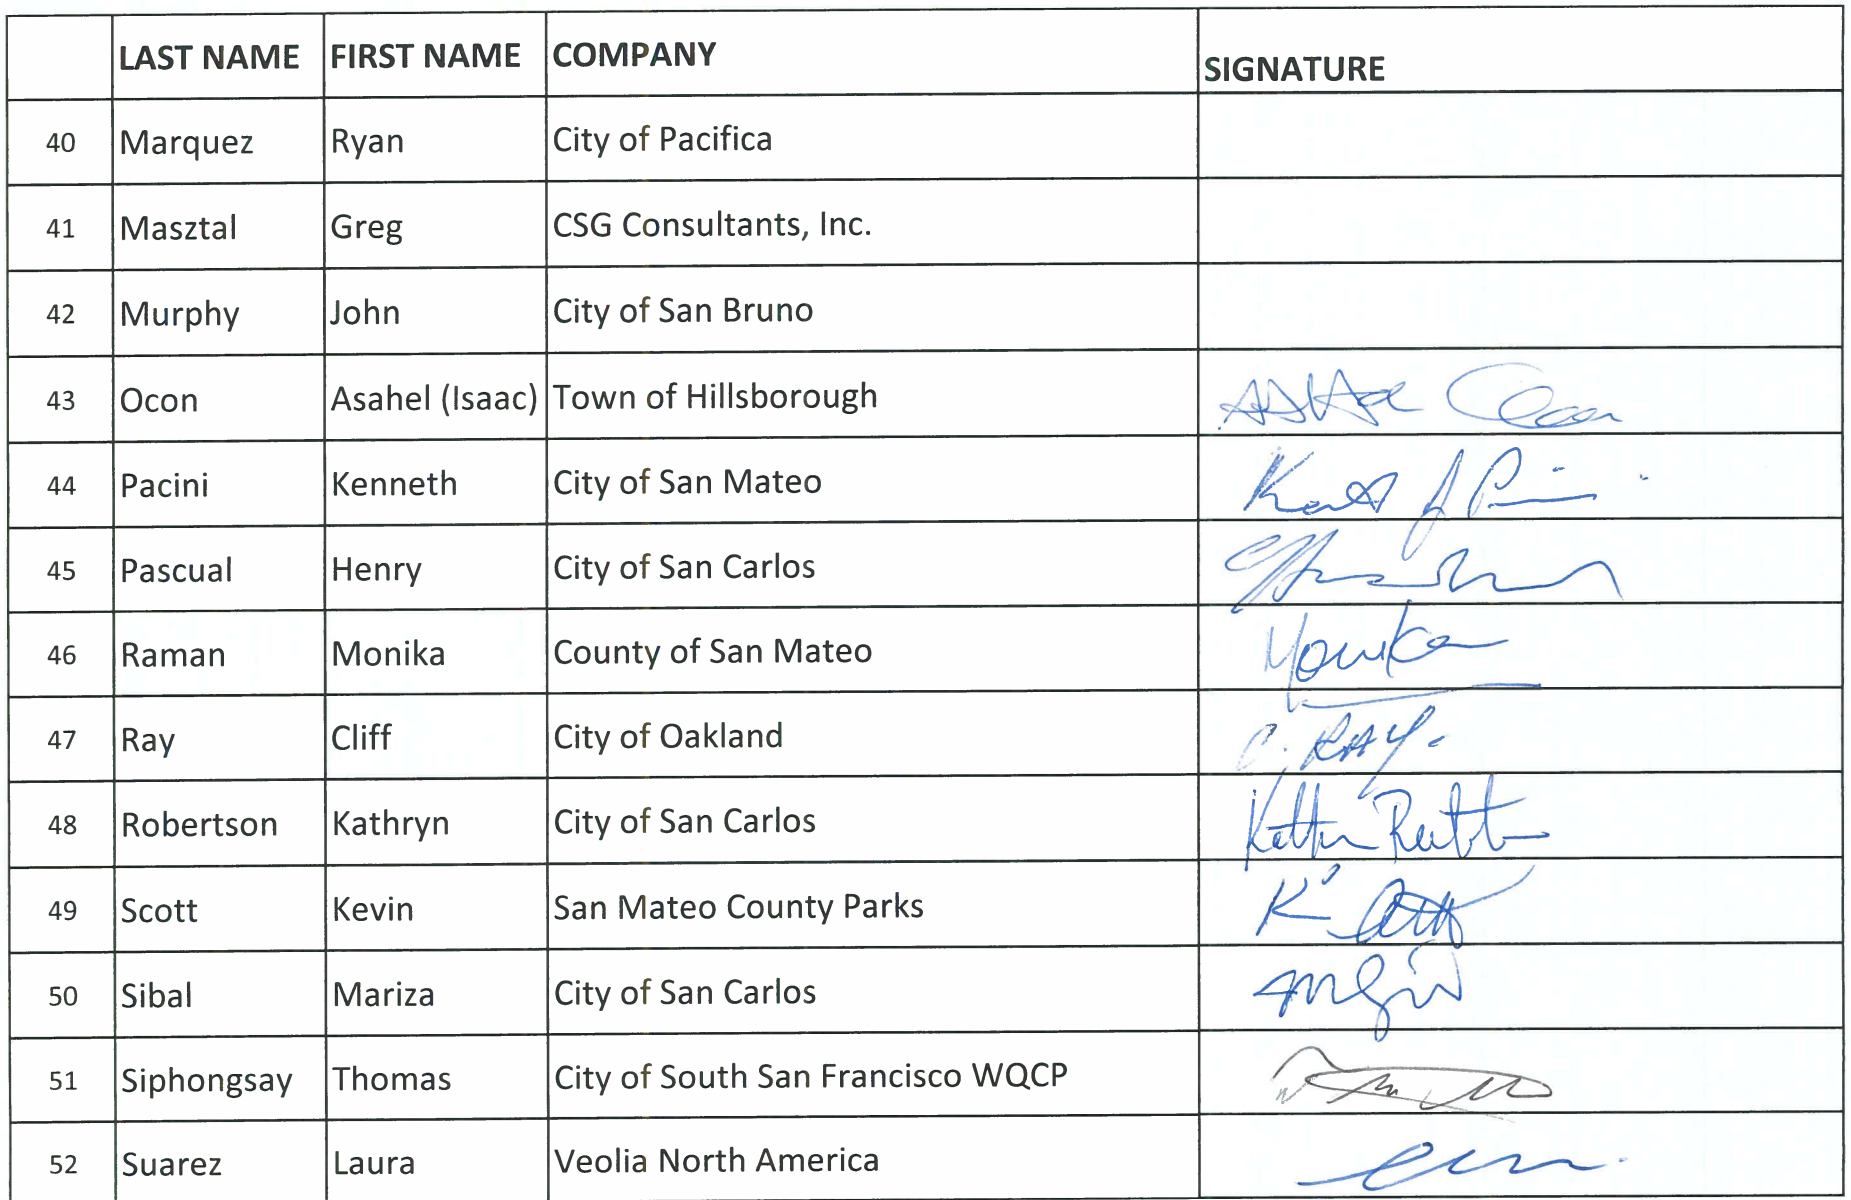 LAST NAME FIRST NAME COMPANY SIGNATURE
40 Marquez Ryan City of Pacifica
41 Masztal Greg CSG Consultants, Inc.
42 Murphy John City of San Bruno
43 Ocon Asahel (Isaac) Town of Hillsborough
44 Pacini Kenneth City of San Mateo
45 Pascual Henry City of San Carlos
46 Raman Monika County of San Mateo
47 Ray Cliff City of Oakland C. RAY.
48 Robertson Kathryn City of San Carlos
49 Scott Kevin San Mateo County Parks
50 Sibal Mariza City of San Carlos
51 Siphongsay Thomas City of South San Francisco WQCP
52 Suarez Laura Veolia North America